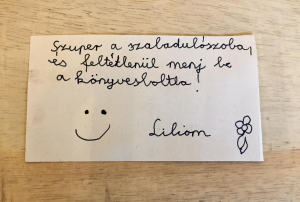 Szuper a szabadulószoba,
és feltétlenül menj be
a könyvesboltba!
Liliom